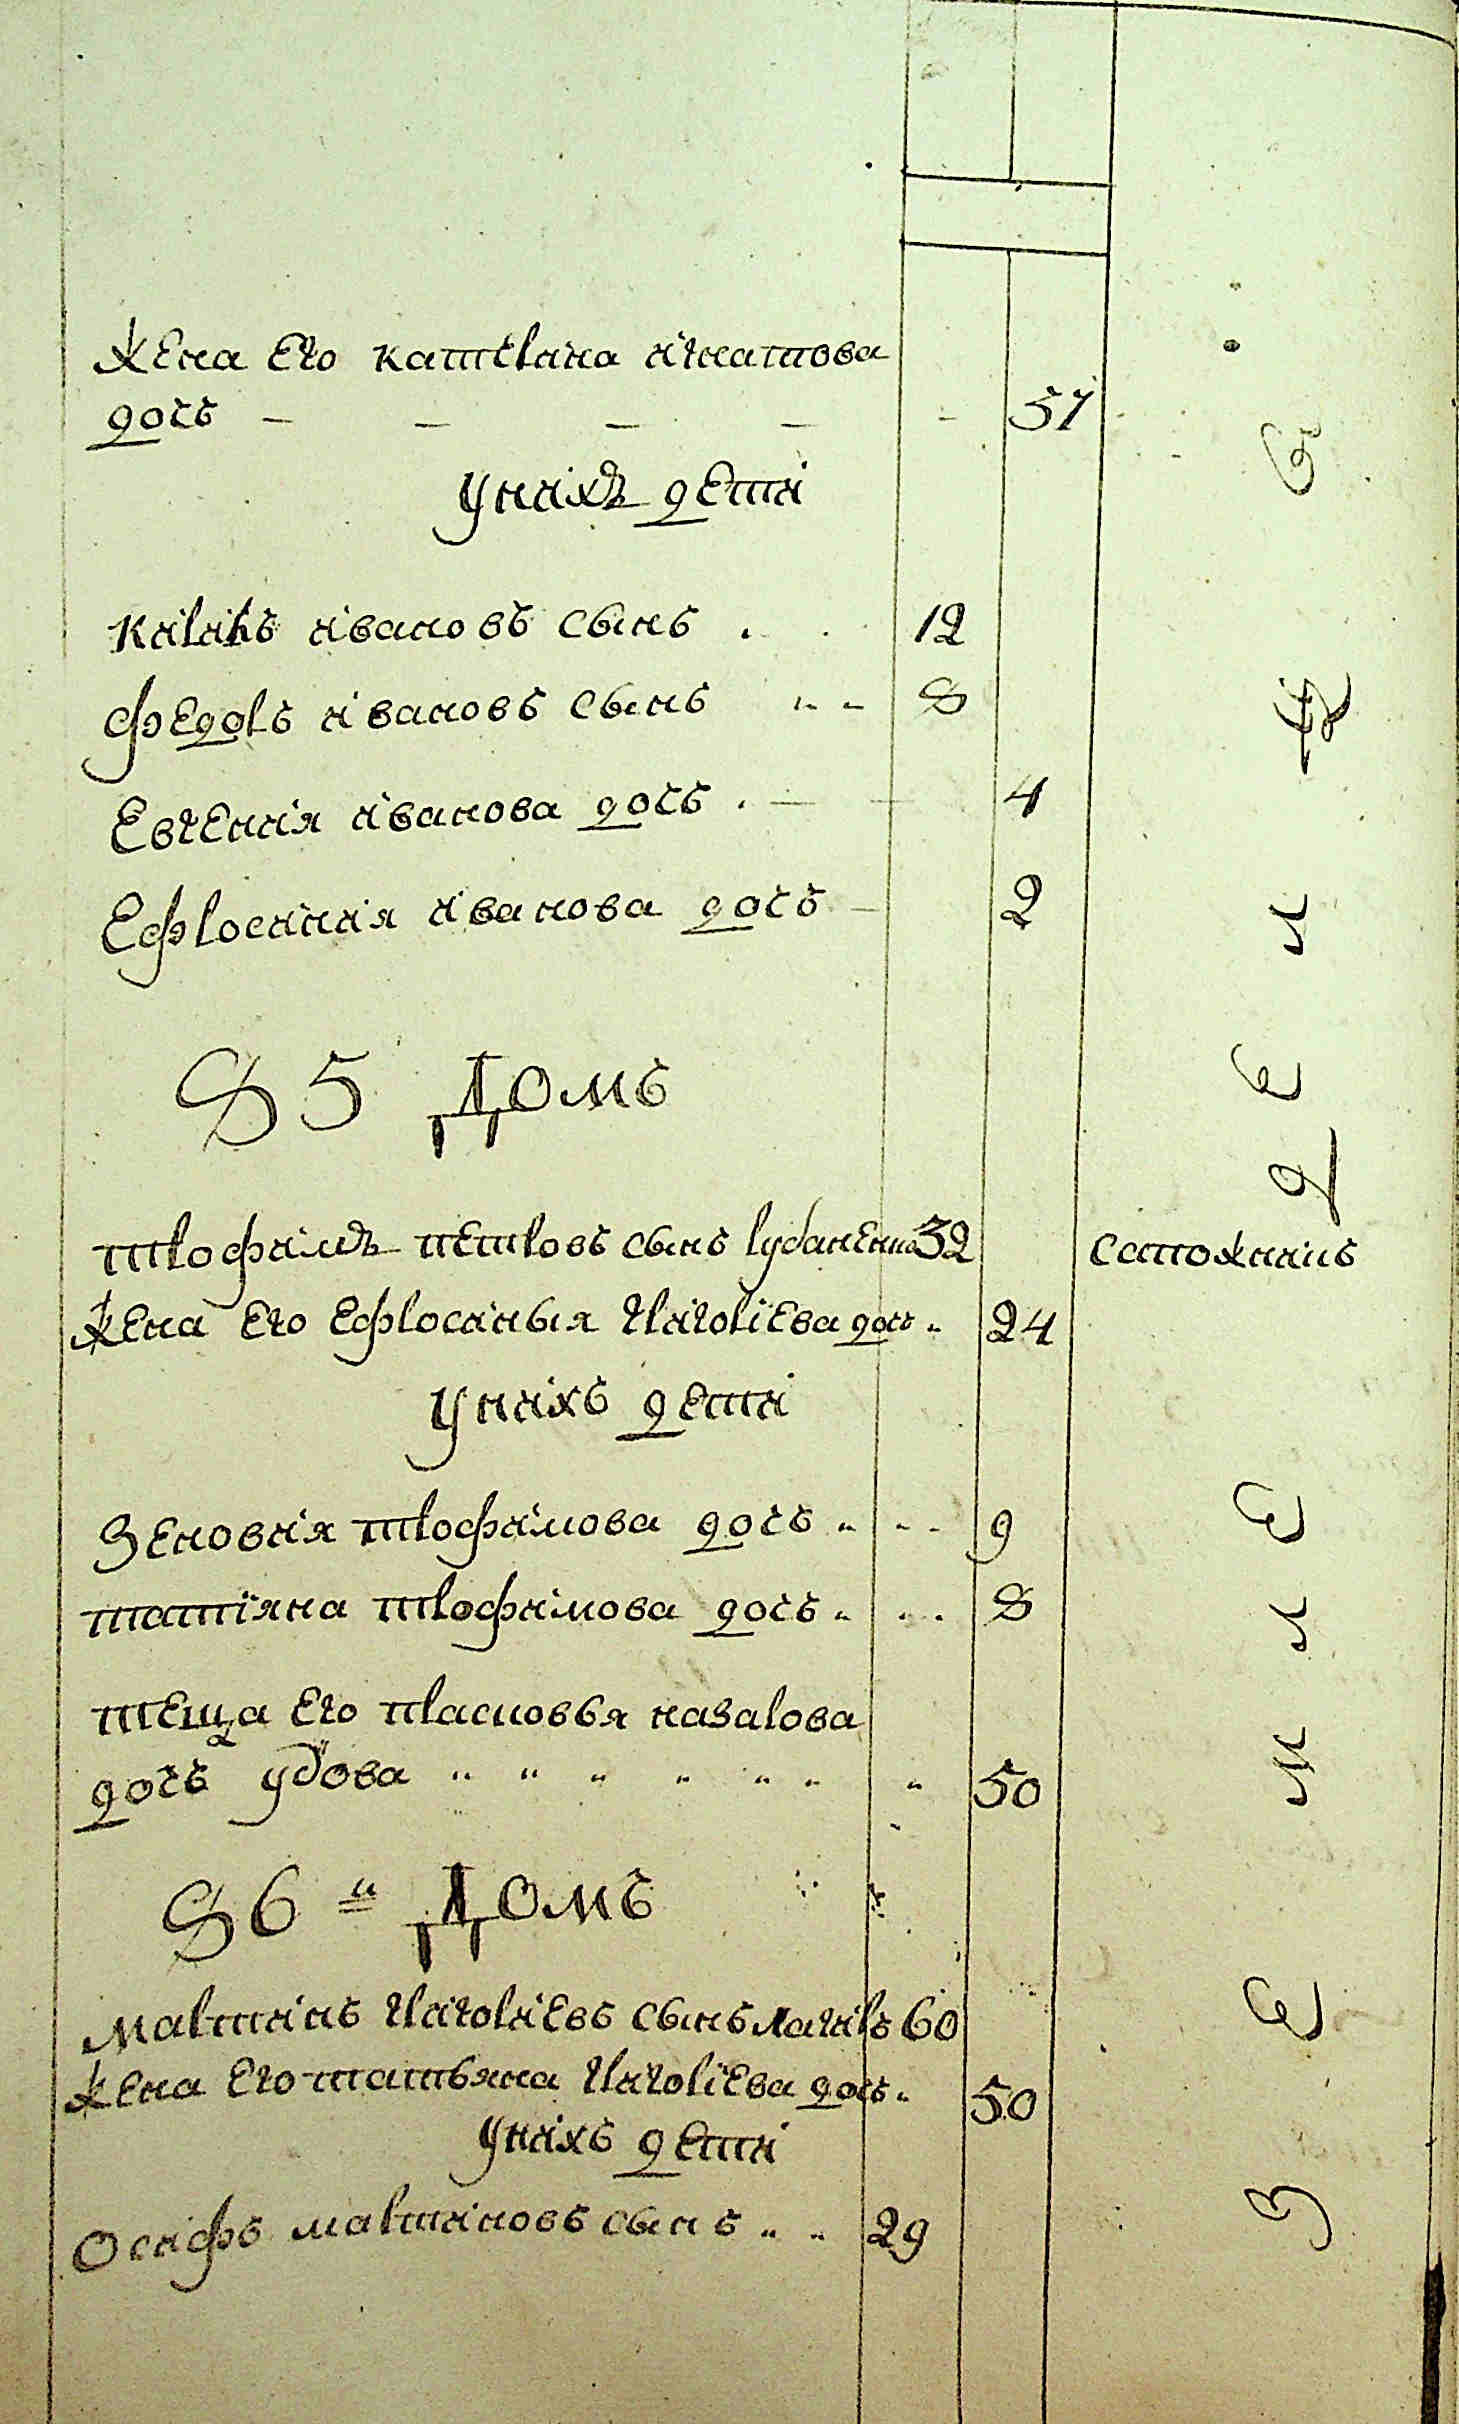 жена его катерина ігнатова
дочъ - - - - - 57
У нихъ дети
Кирикъ івановъ сынъ . . 12
Федоръ івановъ сынъ „ - 8
Евгенія іванова дочъ . - - 4
Ефросинія іванова дочъ - 2
§ 5 Домъ
трофимъ петровъ сынъ рубаненко 32 сапожникъ
жена его ефросинья григоріева дочь „ 24
У нихъ дети
Зеновия трофимова дочъ „ - - 9
татіяна трофимова дочъ „ . . 8
теща его прасковья назарова
дочъ удова „ „ „ „ „ „ „ 50
§ 6 й Домъ
мартинъ григориевъ сынъ 60
жена его татьяна григоріева дочъ „ 50
У нихъ дети
Осифъ мартиновъ сынъ „ „ 29
земледел